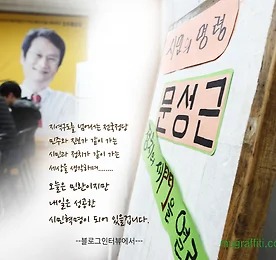 시민의 명령
문성근
지역구도를 넘어서는 전국정당
민주와 진보가 같이 가는
시민과 정치가 같이 가는
세상을 생각하며.......
오늘은 민란이지만
내일은 성공한
시민혁명이 되어 있을겁니다.
--블로그인터뷰에서---
graffiti.co